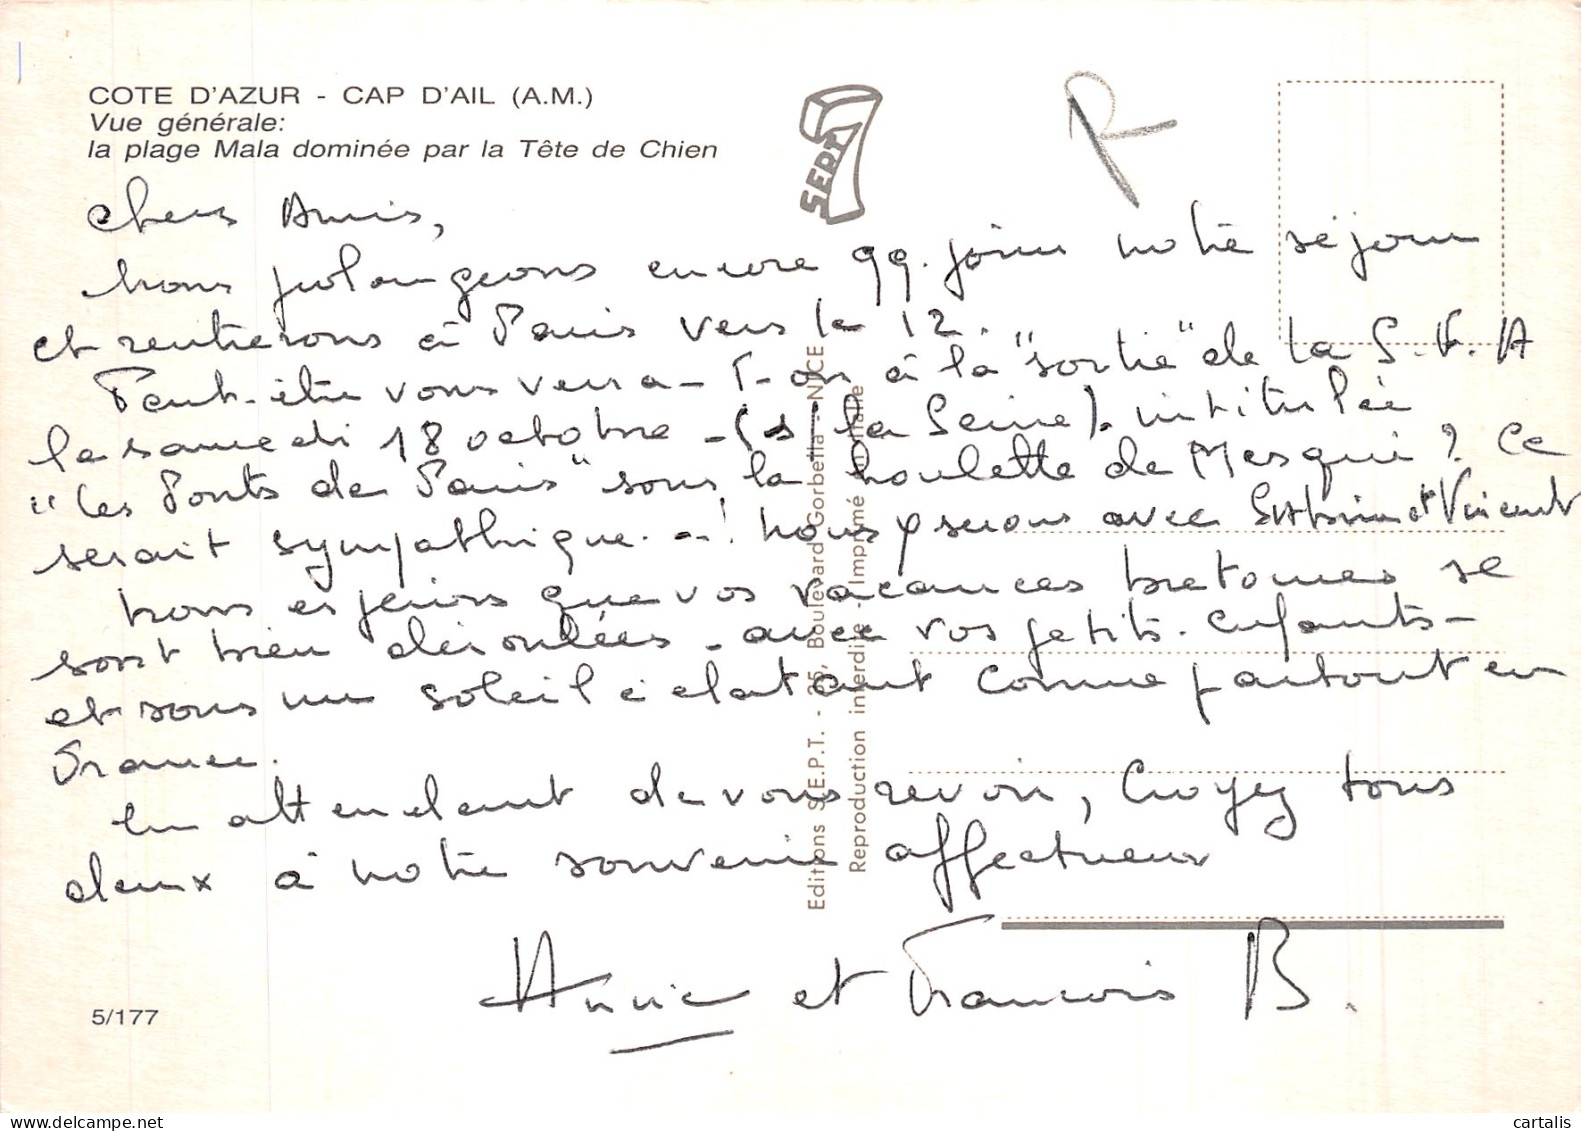 COTE D'AZUR - CAP D'AIL (A.M.)
Vue générale:
la plage Mala dominée par la Tête de Chien
SEPT 7
R
Chers Amis,
Nous prolongeons encore qq. jours notre séjour
et rentrerons à Paris vers le 12.
Peut-être vous verra-t-on à la "sortie" de la S.F.A
le samedi 18 octobre - (s/ la Seine). intitulée
"Les Ponts de Paris" sous la houlette de Mesqui ? Ce
serait sympathique - ! Nous y serons avec et Vincent
Nous espérons que vos vacances bretonnes se
sont bien déroulées - avec vos petits-enfants -
et sous un soleil éclatant comme partout en
France.
En attendant de vous revoir, Croyez tous
deux à notre souvenir affectueux
Annie et Francois B.
Editions S.E.P.T. - 35, Boulevard Gorbella - NICE
Reproduction interdite - Imprimé
5/177
cartalis